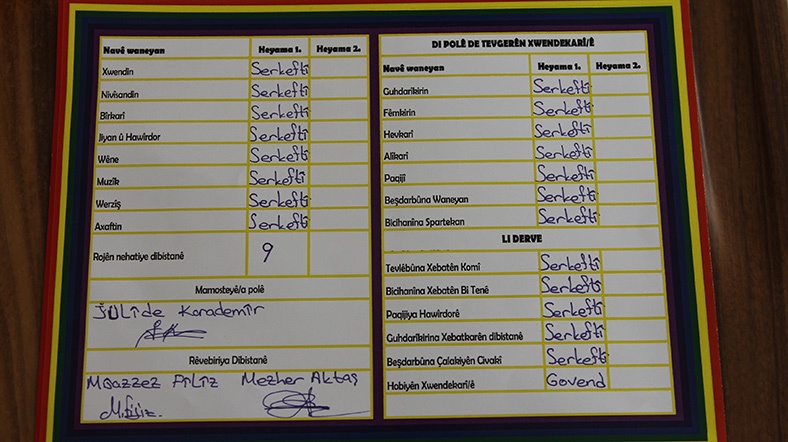 Navê waneyan Heyama 1. Heyama 2.
Xwendin Serkeftî
Nivîsandin Serkeftî
Bîrkarî Serkeftî
Jiyan û Hawîrdor Serkeftî
Wêne Serkeftî
Muzîk Serkeftî
Werzîş Serkeftî
Axaftin Serkeftî
Rojên nehatiye dibistanê 9
Mamosteyê/a polê
Jülîde Karademîr
Rêvebiriya Dibistanê
Muazzez Fîlîz Mezher Aktaş
M.Filiz.
DI POLÊ DE TEVGERÊN XWENDEKARÎ/Ê
Navê waneyan Heyama 1. Heyama 2.
Guhdarîkirin Serkeftî
Fêmkirin Serkeftî
Hevkarî Serkeftî
Alîkarî Serkeftî
Paqijî Serkeftî
Beşdarbûna Waneyan Serkeftî
Bicihanîna Spartekan Serkeftî
LI DERVE
Tevlêbûna Xebatên Komî Serkeftî
Bicihanîna Xebatên Bi Tenê Serkeftî
Paqijiya Hawîrdorê Serkeftî
Guhdarîkirina Xebatkarên dibistanê Serkeftî
Beşdarbûna Çalakiyên Civakî Serkeftî
Hobiyên Xwendekarî/ê Govend